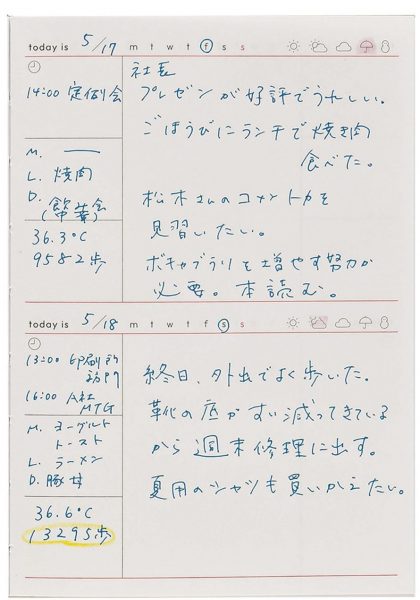 today is 5/17 m t w t f s s
14:00 定例会
M. ー
L. 焼肉
D.
36.3℃
9582歩
社長
プレゼンが好評でうれしい。
ごほうびにランチで焼き肉
食べた。
松木さんのコメント力を
見習いたい。
ボキャブラリを増やす努力が
必要。本読む。
today is 5/18 m t w t f s s
13:00 印刷所
訪問
16:00 A社
MTG
M. ヨーグルト
トースト
L. ラーメン
D. 豚丼
36.6℃
13295歩
終日、外出でよく歩いた。
靴の底がすい減ってきている
から週末修理に出す。
夏用のシャツも買いかえたい。